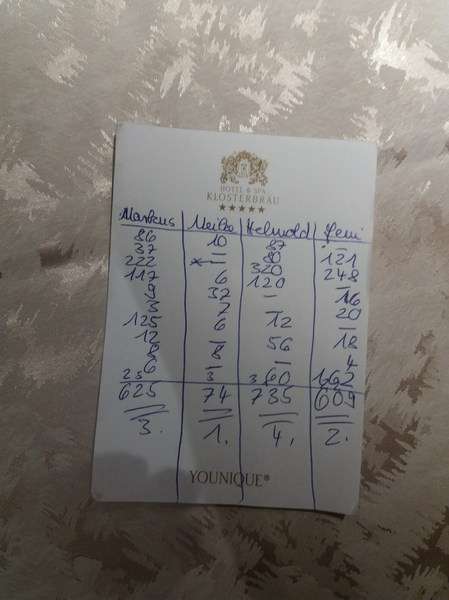 HOTEL & SPA
KLOSTERBRÄU
★★★★★
Markus Meike Helmold Jeni
86 10 87 —
37 — 80 121
222 320 248
117 6 120 —
9 37 — 16
3 7 20
125 6 12 —
12 — 56 18
8 8 — 4
6 3 360 162
625 74 735 609
3. 1. 4. 2.
YOUNIQUE®